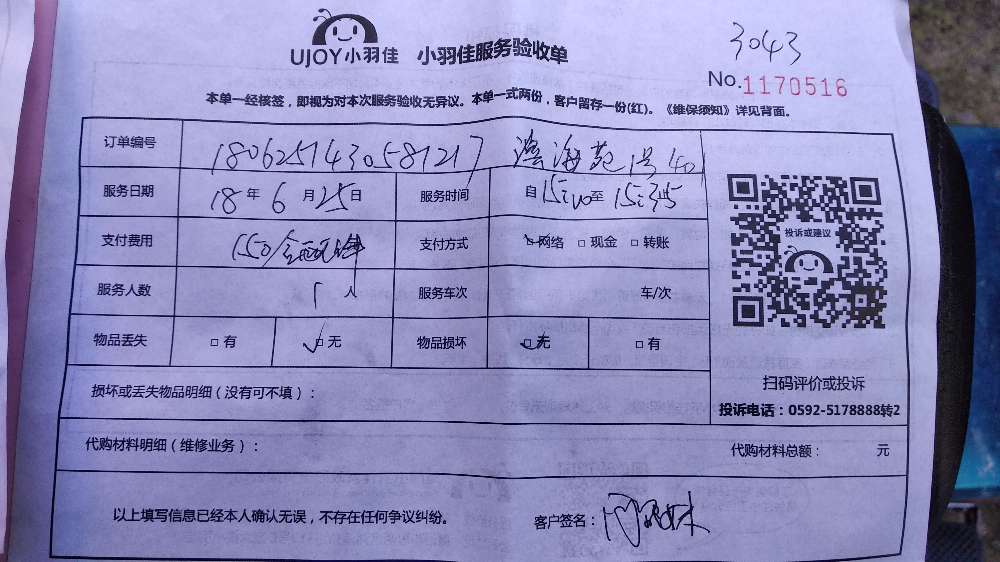 UJOY小羽佳 小羽佳服务验收单
3043
No.1170516
本单一经核签，即视为对本次服务验收无异议。本单一式两份，客户留存一份(红)。《维保须知》详见背面。
订单编号 180625143058121217 海苑1号401
服务日期 18年6月25日 服务时间 自15:00至15:35
支付费用 150 支付方式 □网络 □现金 □转账
服务人数 1人 服务车次 车/次
物品丢失 □有 □无 物品损坏 □无 □有
投诉或建议
扫码评价或投诉
投诉电话：0592-5178888转2
损坏或丢失物品明细（没有可不填）：
代购材料明细（维修业务）： 代购材料总额： 元
以上填写信息已经本人确认无误，不存在任何争议纠纷。 客户签名：